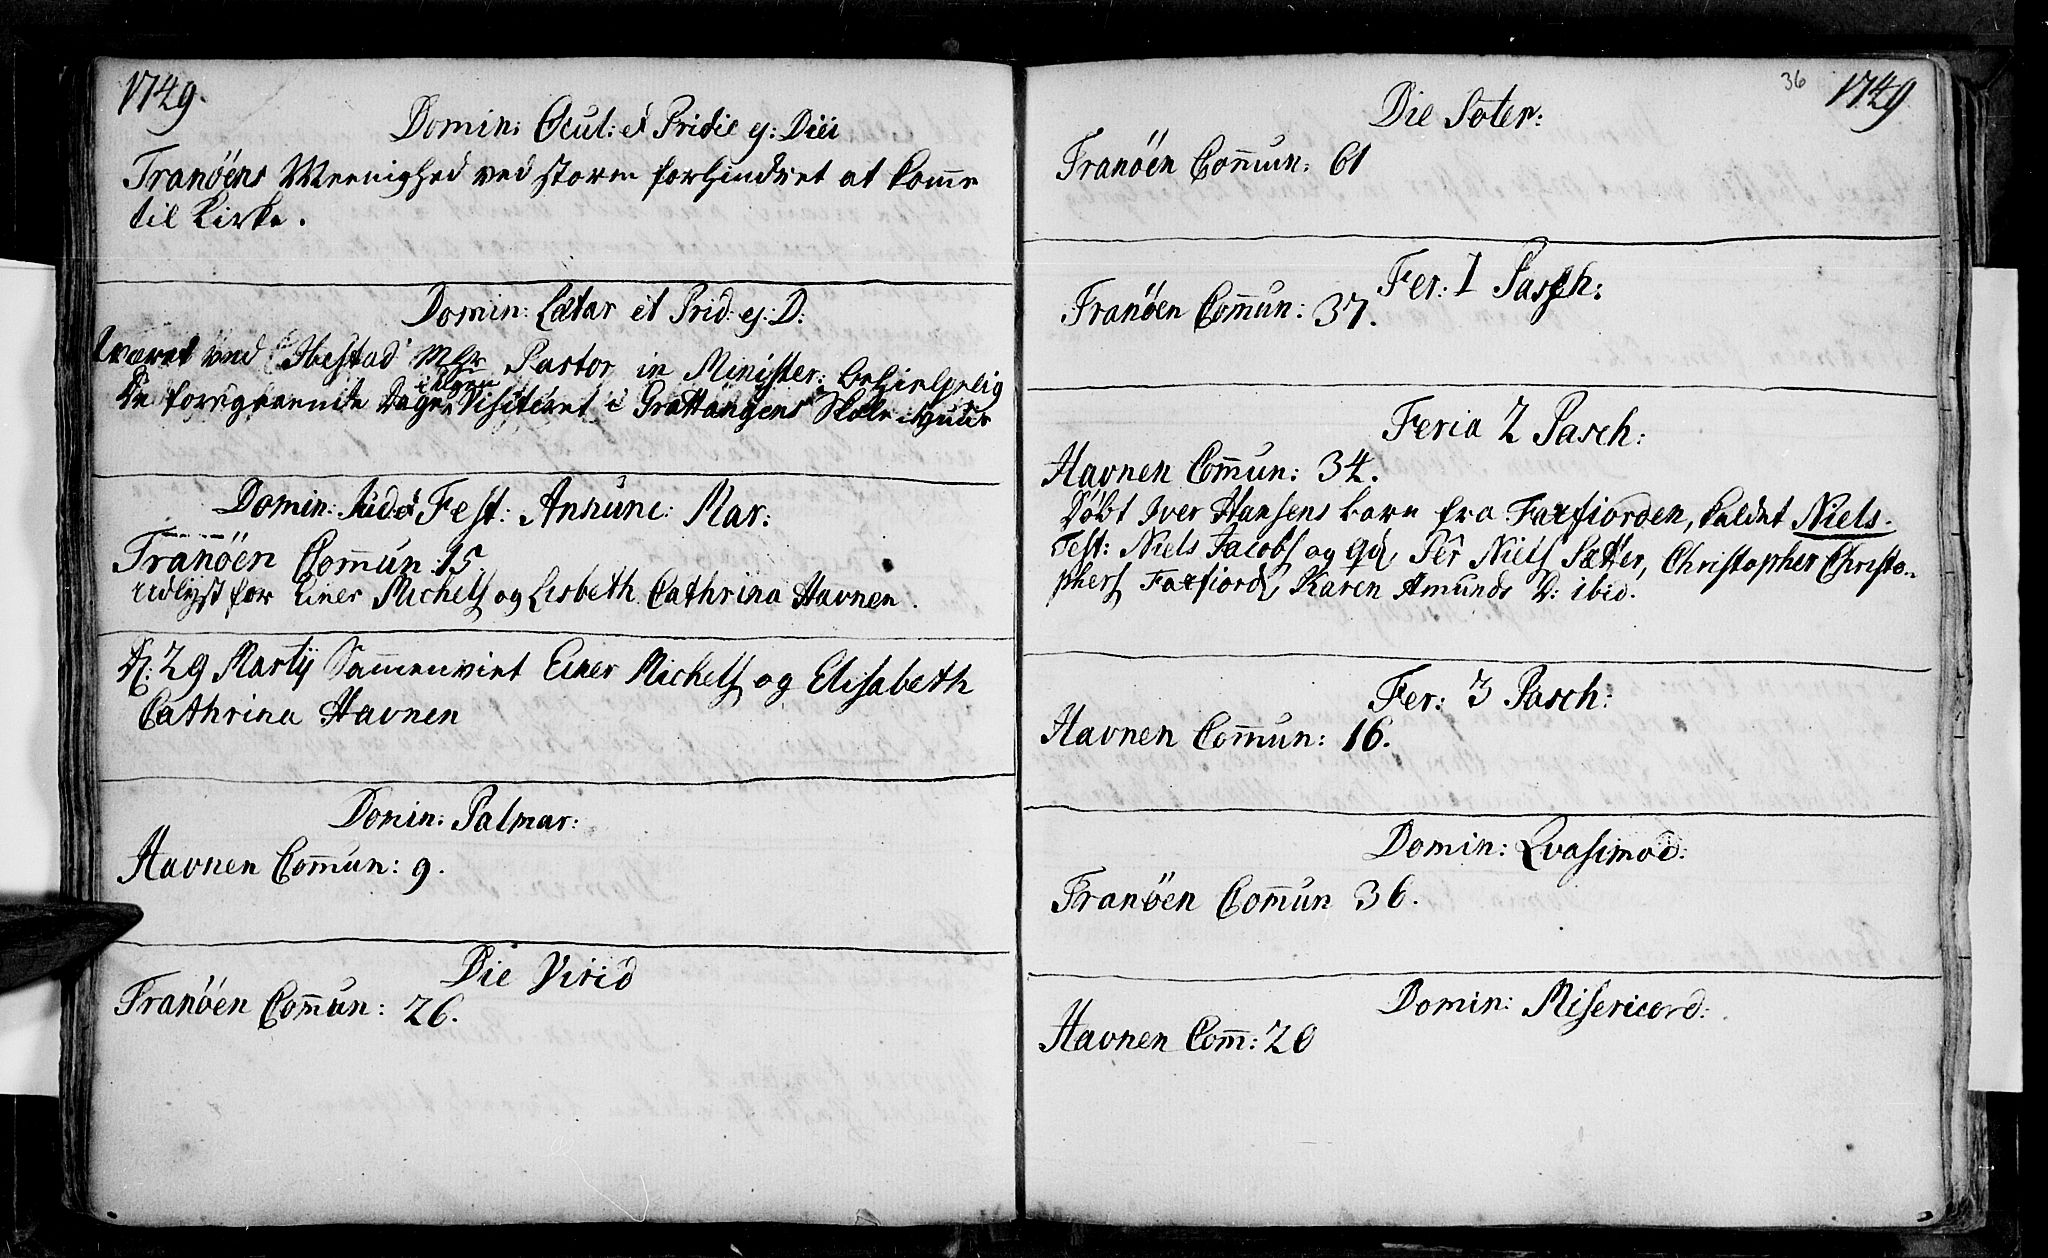 1749.
Domin: Ocul: et Pridie ej: Diei
Tranöens Meenighed ved storm forhindret at komme
til Kirke.
Domin: Lætar et Prid: ej: D:
Været ved Ibestad Mhr Pastor in Minister: behielpelig
De foregaaende Dage Visiteret i Grattangens Skole
Domin: Jud: et Fest: Annunc: Mar:
Tranöen Com̄un 15.
Udlyst for Einer Michels og Lisbeth Cathrina Havnen.
D: 29 Martij Sammenviet Einer Michels og Elisabeth
Cathrina Havnen
Domin: Palmar:
Havnen Com̄un: 9.
Die Virid
Tranöen Com̄un: 26.
36 1749
Die Soter:
Tranöen Com̄un: 61
Fer: 1 Pasch:
Tranöen Com̄un: 37.
Feria 2 Pasch:
Havnen Com̄un: 34.
Döbt Iver Hansens barn fra Faxfiorden, kaldet Niels.
Test: Niels Jacobs og Qd, Per Niels Sætter, Christopher Christo-
phers Faxfiord, Karen Amunds D: ibid.
Fer: 3 Pasch:
Havnen Com̄un: 16.
Domin: Qvasimod:
Tranöen Com̄un 36.
Domin: Misericord:
Havnen Com̄: 20